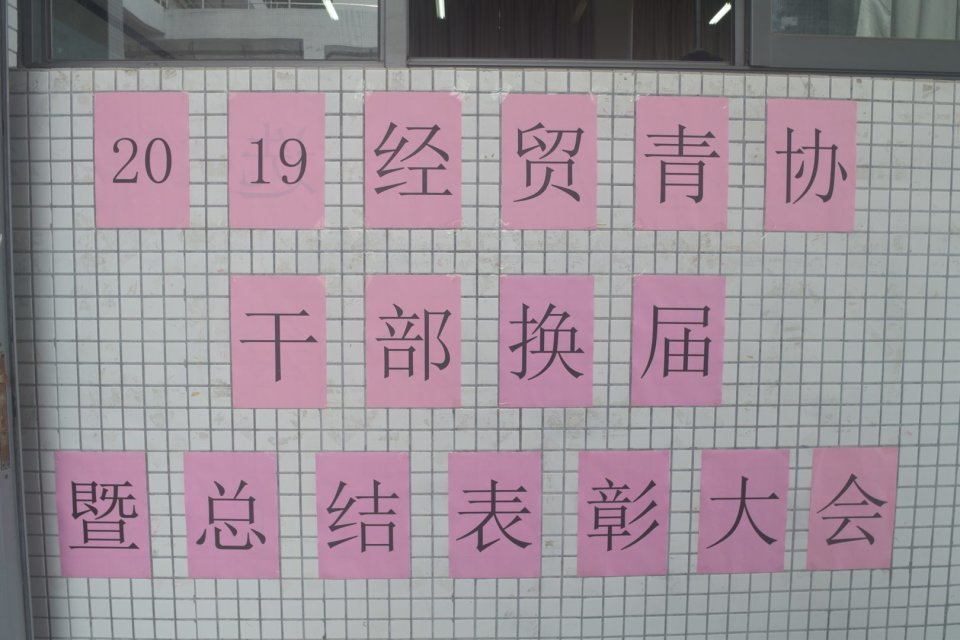 2019经贸青协
干部换届
暨总结表彰大会